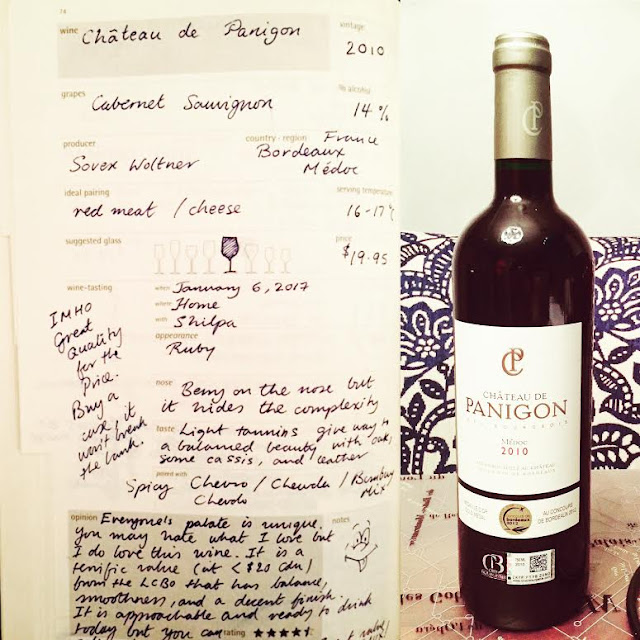 78
wine
vintage
Château de Panigon
2010
grapes
% alcohol
Cabernet Sauvignon
14 %
producer
country · region
France
Bordeaux
Sovex Woltner
Médoc
ideal pairing
serving temperature
red meat / cheese
16-17°C
suggested glass
price
$19.95
wine-tasting
when January 6, 2017
where Home
with Shilpa
appearance
Ruby
nose Berry on the nose but
it hides the complexity
taste Light tannins give way to
a balanced beauty with oak,
some cassis, and leather
paired with
Spicy Chevro / Chevda / Bombay
Chevdo Mix
IMHO
Great
Quality
for the
Price.
Buy a
case, it
won't break
the bank.
opinion Everyone's palate is unique.
you may hate what I love but
I do love this wine. It is a
terrific value (at < $20 cdn)
from the LCBO that has balance,
smoothness, and a decent finish.
It is approachable and ready to drink
today but you can
notes
rating ★★★★
CP
CP
CHÂTEAU DE
PANIGON
CRU BOURGEOIS
Médoc
2010
Bordeaux
2012
AU CONCOURS
DE BORDEAUX 2012
CB